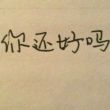 你还好吗